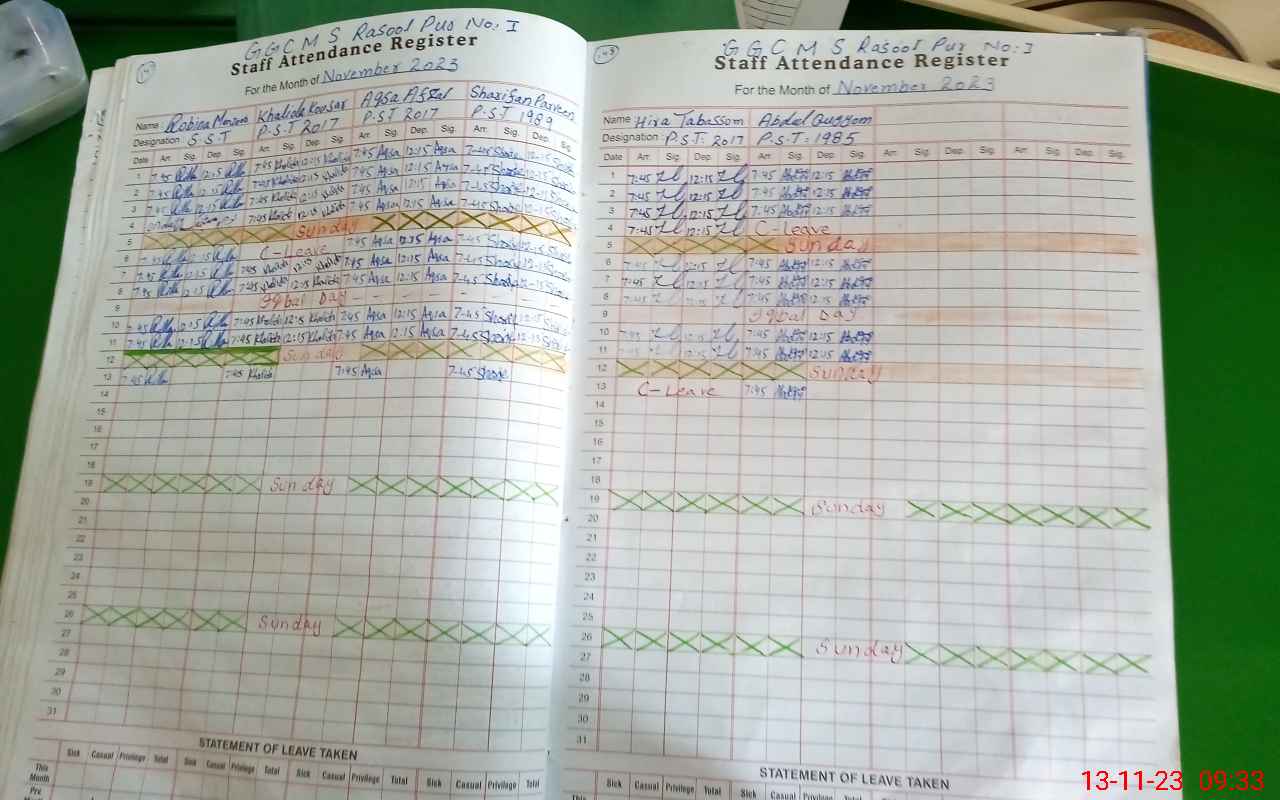 G G C M S Rasool Pur No: I
Staff Attendance Register
For the Month of November 2023
Name Robina Khalida Kousar Aqsa Afzal Sharifan Parveen
Designation S.S.T P.S.T 2017 P.S.T 2017 P.S.T 1989
Date Arr. Sig. Dep. Sig. Arr. Sig. Dep. Sig. Arr. Sig. Dep. Sig. Arr. Sig. Dep. Sig.
1 7:45 12:15 7:45 Khalida 12:15 Khalida 7:45 Aqsa 12:15 Aqsa 7-45 12-15
2 7:45 12:15 7:45 Khalida 12:15 Khalida 7:45 Aqsa 12:15 Aqsa 7-45 12-15
3 7:45 12:15 7:45 Khalida 12:15 Khalida 7:45 Aqsa 12:15 Aqsa 7-45 12-15
4 7:45 Khalida 12:15 Khalida 7:45 Aqsa 12:15 Aqsa 7-45 12-15
5 Sunday
6 7:45 12:15 C-Leave 7:45 Aqsa 12:15 Aqsa 7-45 12-15
7 7:45 12:15 7:45 Khalida 12:15 Khalida 7:45 Aqsa 12:15 Aqsa 7-45 12-15
8 7:45 12:15 7:45 Khalida 12:15 Khalida 7:45 Aqsa 12:15 Aqsa 7-45 12-15
9 Iqbal Day
10 7:45 12:15 7:45 Khalida 12:15 Khalida 7:45 Aqsa 12:15 Aqsa 7-45 12-15
11 7:45 12:15 7:45 Khalida 12:15 Khalida 7:45 Aqsa 12:15 Aqsa 7-45 12-15
12 Sunday
13 7:45 7:45 Khalida 7:45 Aqsa 7-45
14
15
16
17
18
19 Sunday
20
21
22
23
24
25
26 Sunday
27
28
29
30
31
STATEMENT OF LEAVE TAKEN
Sick Casual Privilege Total Sick Casual Privilege Total Sick Casual Privilege Total Sick Casual Privilege Total
This
Month
Pre
G G C M S Rasool Pur No: I
Staff Attendance Register
For the Month of November 2023
Name Hira Tabassom Abdul Quyyom
Designation P.S.T. 2017 P.S.T. 1985
Date Arr. Sig. Dep. Sig. Arr. Sig. Dep. Sig. Arr. Sig. Dep. Sig. Arr. Sig. Dep. Sig.
1 7:45 12:15 7:45 12:15
2 7:45 12:15 7:45 12:15
3 7:45 12:15 7:45 12:15
4 7:45 12:15 C-Leave
5 Sunday
6 7:45 12:15 7:45 12:15
7 7:45 12:15 7:45 12:15
8 7:45 12:15 7:45 12:15
9 Iqbal Day
10 7:45 12:15 7:45 12:15
11 7:45 12:15 7:45 12:15
12 Sunday
13 C-Leave 7:45
14
15
16
17
18
19 Sunday
20
21
22
23
24
25
26 Sunday
27
28
29
30
31
STATEMENT OF LEAVE TAKEN
Sick Casual Privilege Total Sick Casual Privilege Total Sick Casual Privilege Total Sick Casual Privilege Total
This
13-11-23 09:33